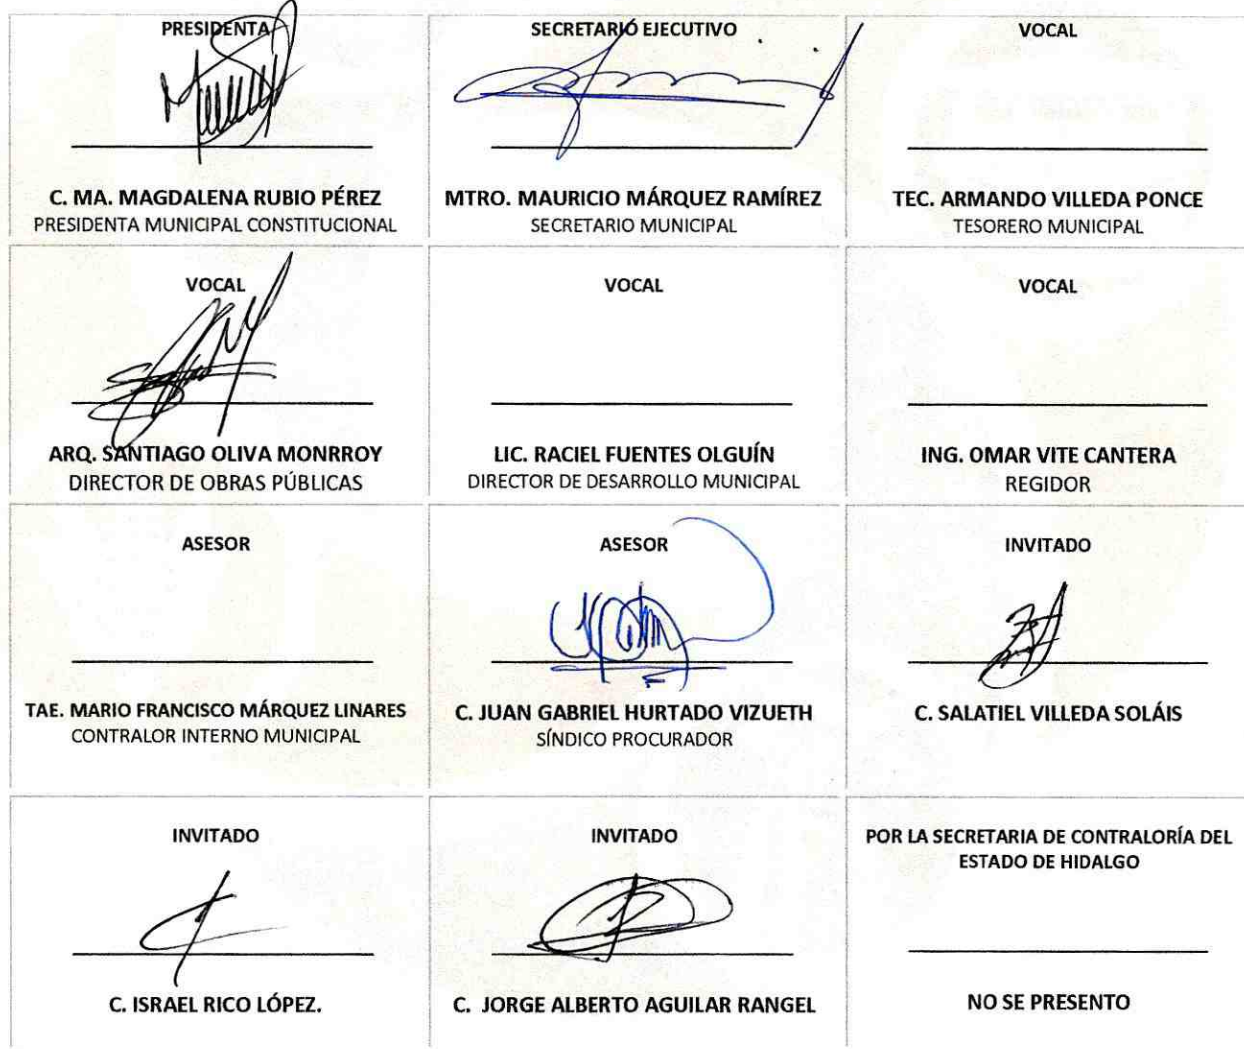 PRESIDENTA
C. MA. MAGDALENA RUBIO PÉREZ
PRESIDENTA MUNICIPAL CONSTITUCIONAL
SECRETARIO EJECUTIVO
MTRO. MAURICIO MÁRQUEZ RAMÍREZ
SECRETARIO MUNICIPAL
VOCAL
TEC. ARMANDO VILLEDA PONCE
TESORERO MUNICIPAL
VOCAL
ARQ. SANTIAGO OLIVA MONRROY
DIRECTOR DE OBRAS PÚBLICAS
VOCAL
LIC. RACIEL FUENTES OLGUÍN
DIRECTOR DE DESARROLLO MUNICIPAL
VOCAL
ING. OMAR VITE CANTERA
REGIDOR
ASESOR
TAE. MARIO FRANCISCO MÁRQUEZ LINARES
CONTRALOR INTERNO MUNICIPAL
ASESOR
C. JUAN GABRIEL HURTADO VIZUETH
SÍNDICO PROCURADOR
INVITADO
C. SALATIEL VILLEDA SOLÁIS
INVITADO
C. ISRAEL RICO LÓPEZ.
INVITADO
C. JORGE ALBERTO AGUILAR RANGEL
POR LA SECRETARIA DE CONTRALORÍA DEL
ESTADO DE HIDALGO
NO SE PRESENTO